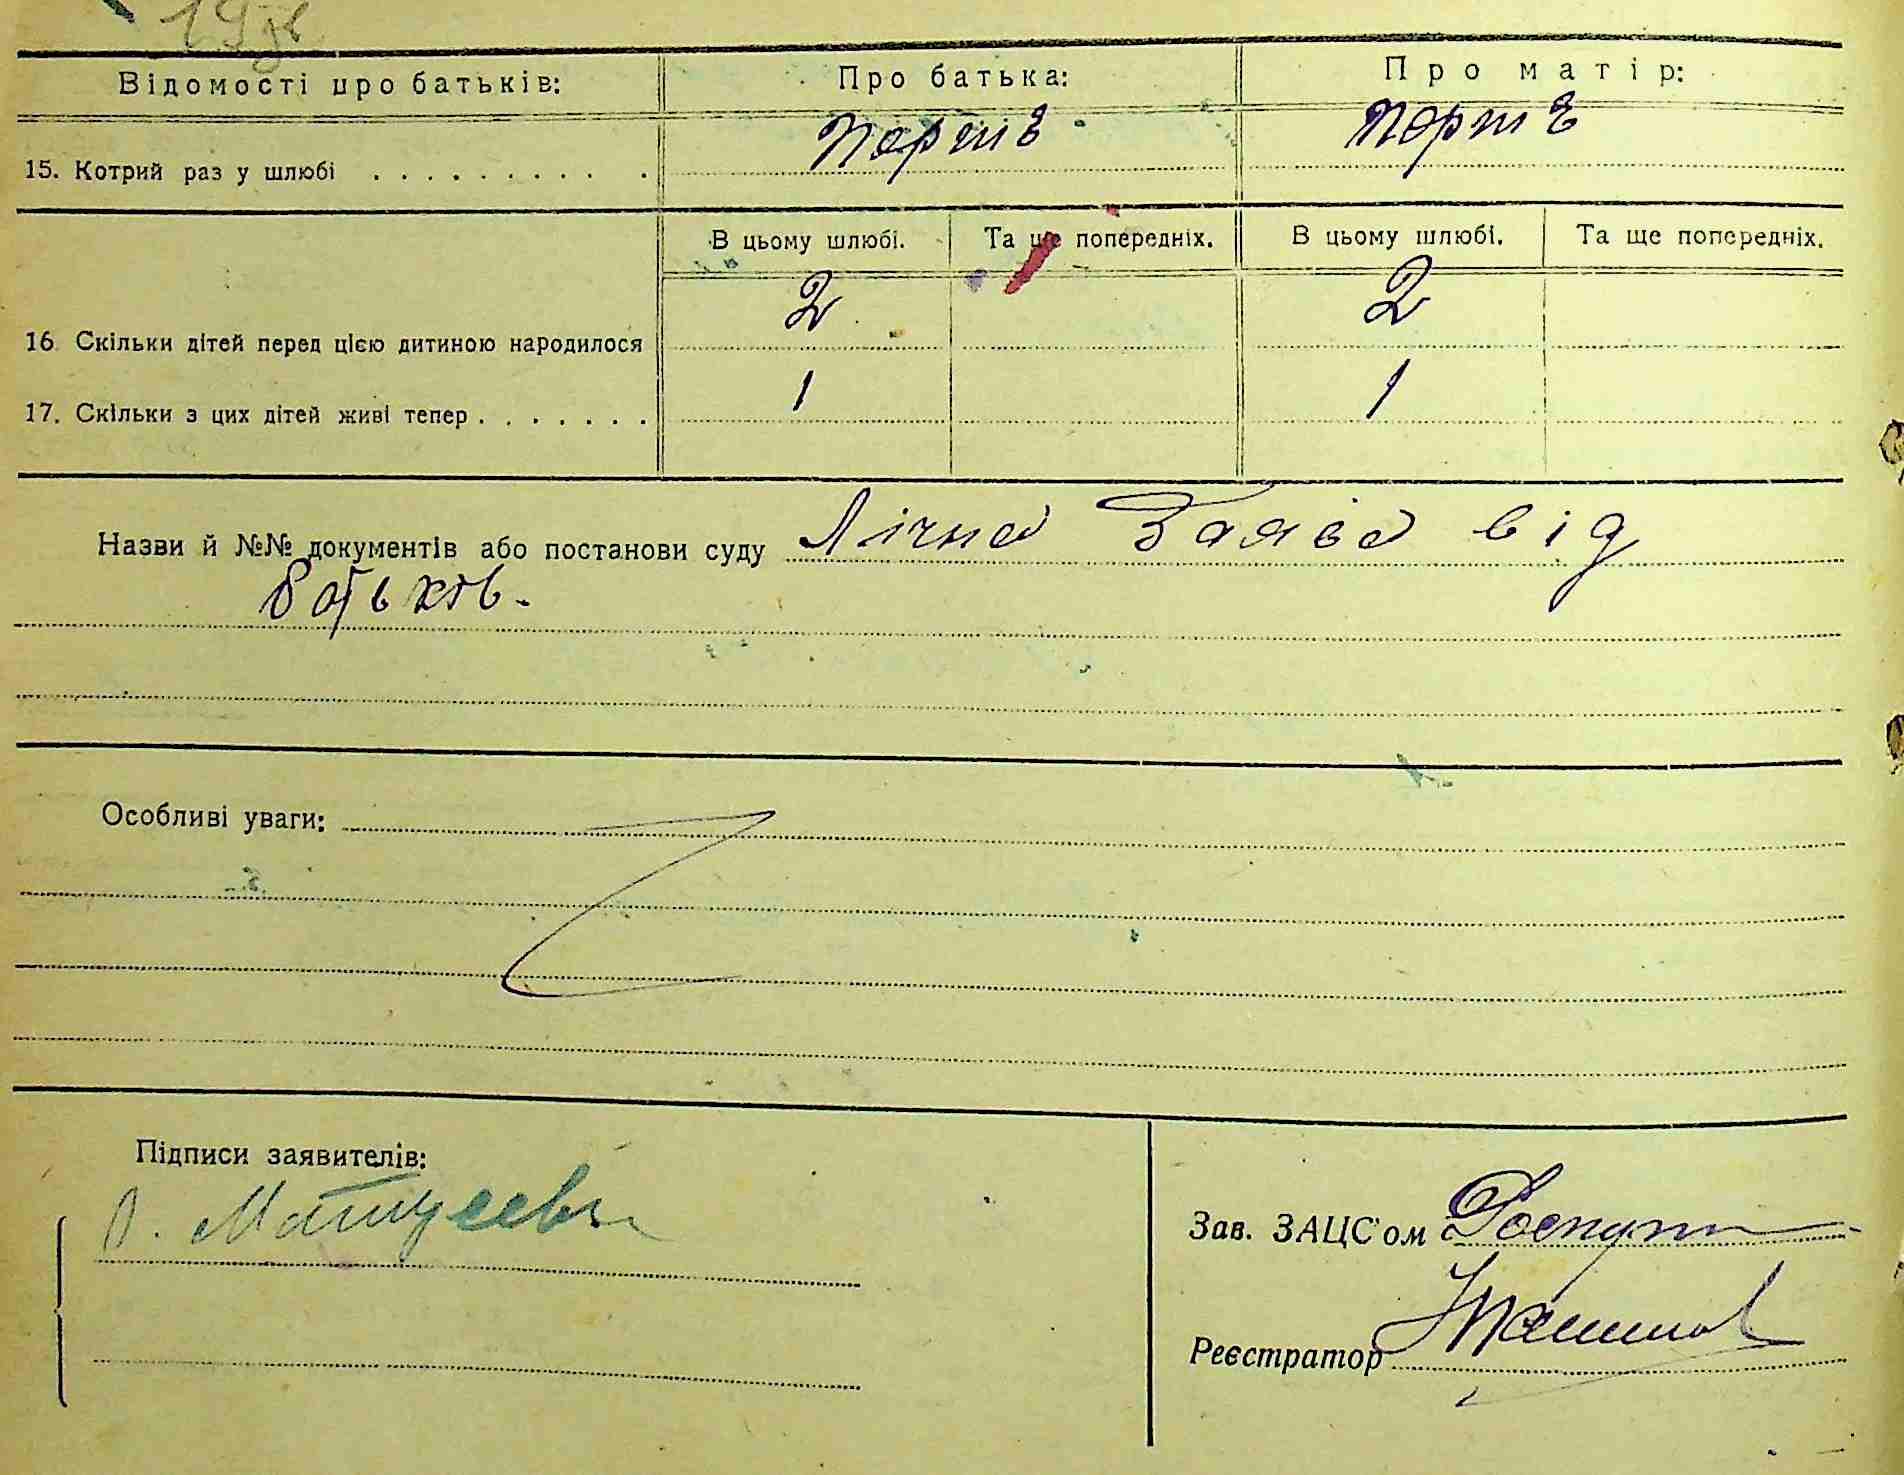 19зв
Відомості про батьків: Про батька: Про матір:
15. Котрий раз у шлюбі . . . . . . . . . . . перші перші
В цьому шлюбі. Та ще попередніх. В цьому шлюбі. Та ще попередніх.
16. Скільки дітей перед цією дитиною народилося 2 2
17. Скільки з цих дітей живі тепер . . . . . . . 1 1
Назви й №№ документів або постанови суду Лічна Заява від
батьків.
Особливі уваги:
Підписи заявителів:
Матусевич
Зав. ЗАЦС'ом
Реєстратор